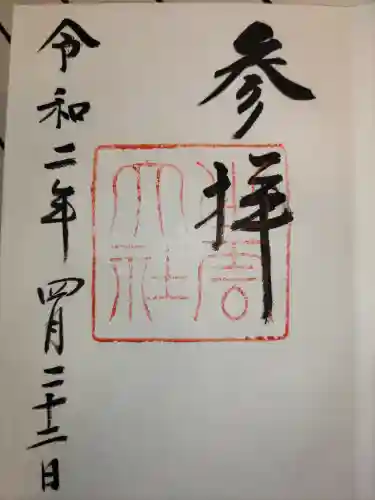 参拝
出雲
大社
令和二年四月二十二日